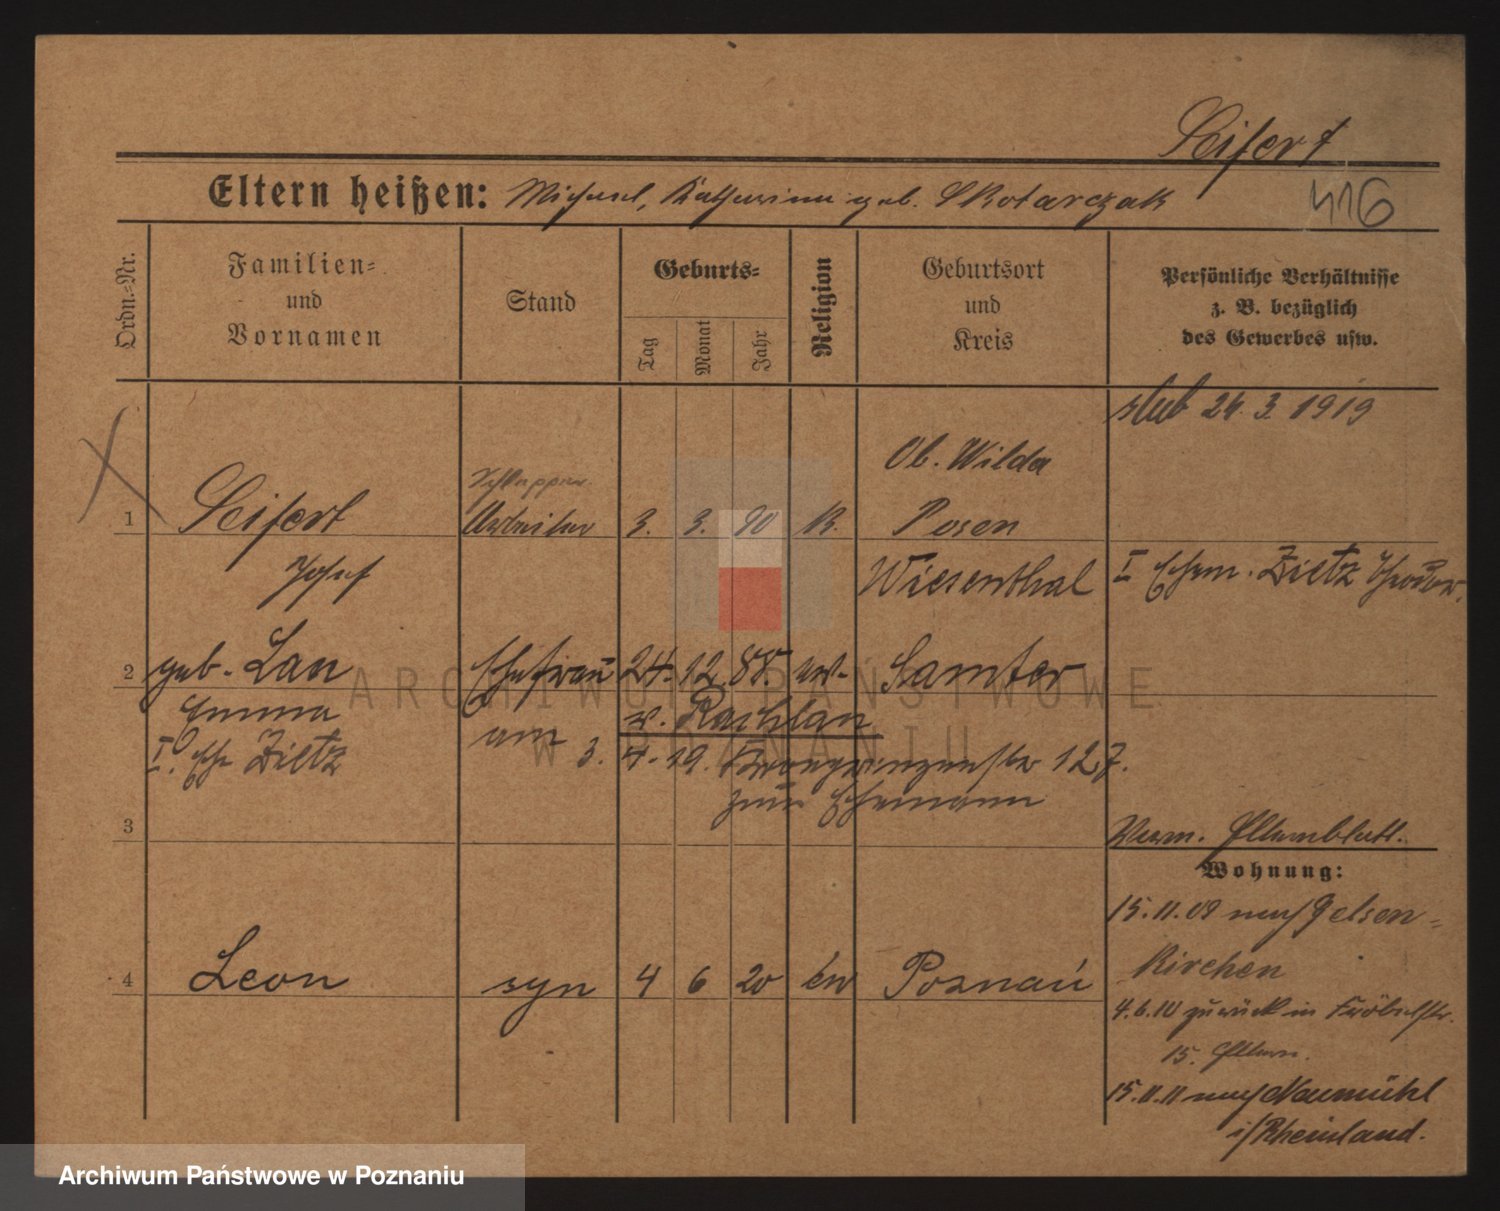 Seifert
Eltern heißen: Michael, Katharina geb. Skotarczak
416
Ordn.-Nr.
Familien-
und
Vornamen
Stand
Geburts-
Tag
Monat
Jahr
Religion
Geburtsort
und
Kreis
Persönliche Verhältnisse
z. B. bezüglich
des Gewerbes usw.
slub 24. 3. 1919
Ob. Wilda
1 Seifert Arbeiter 3. 3. 90 K. Posen
Josef Wiesenthal I Ehem. Zietz Theodor.
2 geb. Lau Ehefrau 24. 12. 88. ev. Samter
Emma v. Rachlau
I. Ehe Zietz am 3. 4. 19. Kronprinzenstr 127.
zum Ehemann
3
Verm. Elternblatt.
Wohnung:
15. 11. 09 nach Gelsen-
kirchen
4 Leon syn 4 6 20 ew Poznań
4. 6. 10 zurück in Fröbelstr.
15. Eltern.
15. 11. 11 nach Neumühl
i/Rheinland.
ARCHIWUM PAŃSTWOWE
W POZNANIU
Archiwum Państwowe w Poznaniu